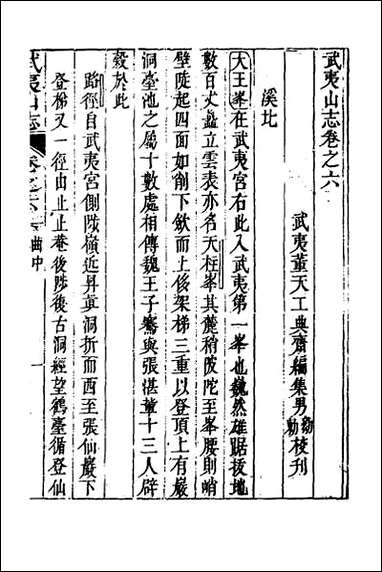 武夷山志卷之六
武夷董天工典齋編集男勷勤校刊
溪北
大王峯在武夷宮右此入武夷第一峯也巍然雄踞拔地
數百丈矗立雲表亦名天柱峯其麓稍陂陀至峯腰則峭
壁陡起四面如削下斂而上侈架梯三重以登頂上有巖
洞臺池之屬十數處相傳魏王子騫與張湛輩十三人辟
穀於此
路徑自武夷宮側陟嶺近昇眞洞折而西至張仙巖下
登梯又一徑由止止菴後陟後古洞經望鶴臺循登仙
武夷山志
卷之六
一曲中
一